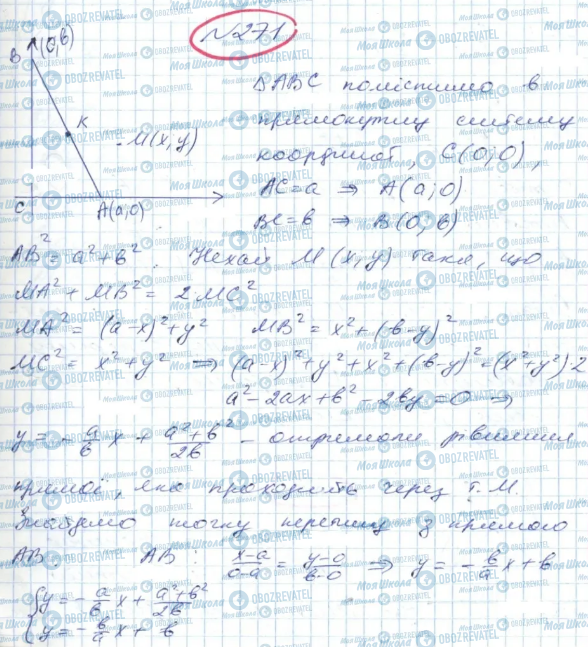 №271
B (0, в)
K
M(x, y)
C
A(a, 0)
ΔABC помістимо в
прямокутну систему
координат, C(0,0),
AC=a ⇒ A(a,0)
BC=в ⇒ B(0, в)
AB² = a²+в². Нехай M(x,y) така, що
MA² + MB² = 2MC²
MA² = (a-x)²+y² MB² = x²+(в-y)²
MC² = x²+y² ⇒ (a-x)²+y²+x²+(в-y)²=(x²+y²)2
a²-2ax+в²-2вy=0 ⇒
y = -a/в x + (a²+в²)/2в - отримали рівняння
прямої, яка проходить через т. M.
Знайдемо точку перетину з прямою
AB. AB: (x-a)/(0-a) = (y-0)/(в-0) ⇒ y = -в/a x+в
{y = -a/в x + (a²+в²)/2в
y = -в/a x + в